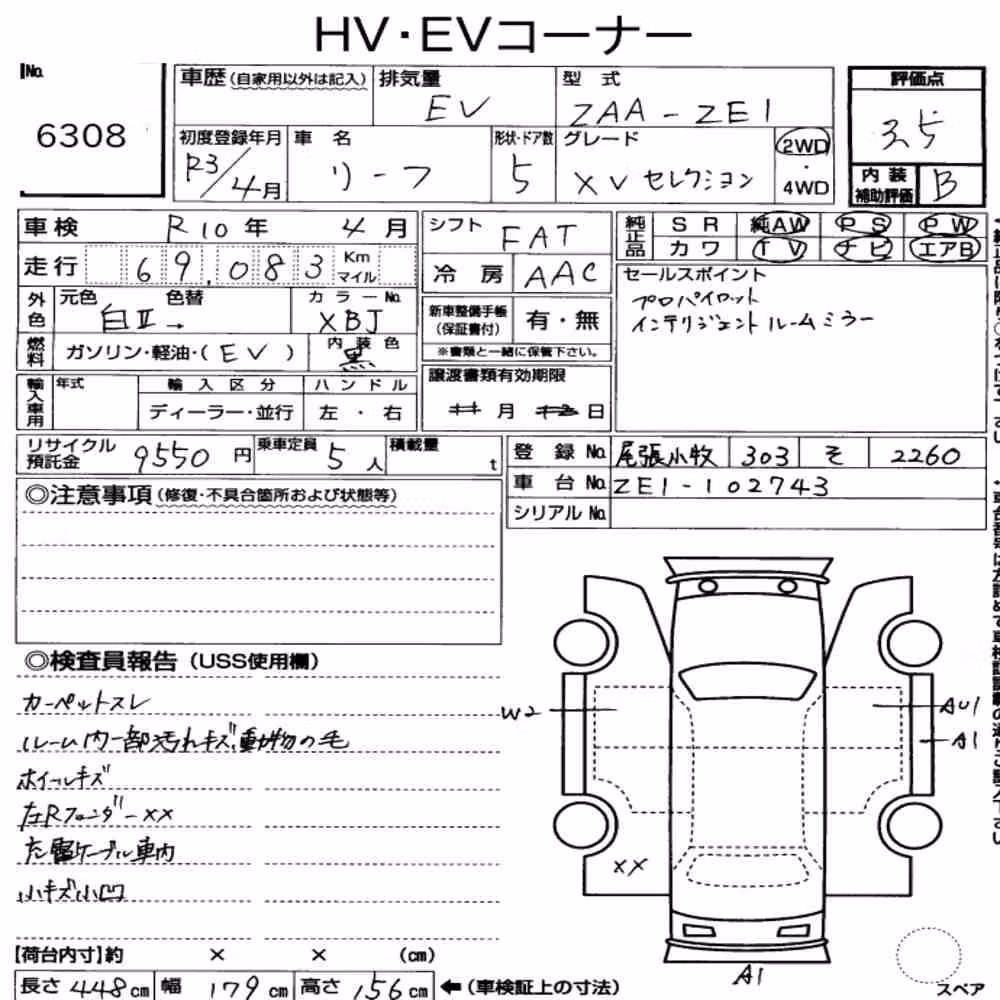 HV・EVコーナー
No.
6308
車歴(自家用以外は記入)
排気量
EV
型式
ZAA-ZE1
評価点
3.5
内装
補助評価
B
初度登録年月
R3/4月
車名
リーフ
形状・ドア数
5
グレード
XVセレクション
2WD
・
4WD
車検
R10年 4月
走行
69,083 Km
マイル
外色
元色 色替
白Ⅱ→
カラーNo.
XBJ
燃料
ガソリン・軽油・(EV)
内装色
黒
輸入車用
年式
輸入区分
ディーラー・並行
ハンドル
左・右
シフト
FAT
冷房
AAC
新車整備手帳
(保証書付)
有・無
※書類と一緒に保管下さい。
譲渡書類有効期限
月 日
純正品
SR 純AW PS PW
カワ TV ナビ エアB
セールスポイント
プロパイロット
インテリジェントルームミラー
リサイクル
預託金
9550円
乗車定員
5人
積載量
t
登録No.
尾張小牧 303 そ 2260
車台No.
ZE1-102743
シリアルNo.
◎注意事項(修復・不具合箇所および状態等)
◎検査員報告(USS使用欄)
カーペットスレ
ルーム内一部汚れキズ、動物の毛
ホイールキズ
左Rフェンダーxx
充電ケーブル車内
小キズ小凹
W2
AU1
A1
XX
A1
スペア
【荷台内寸】約 × × (cm)
長さ448cm 幅179cm 高さ156cm ←(車検証上の寸法)